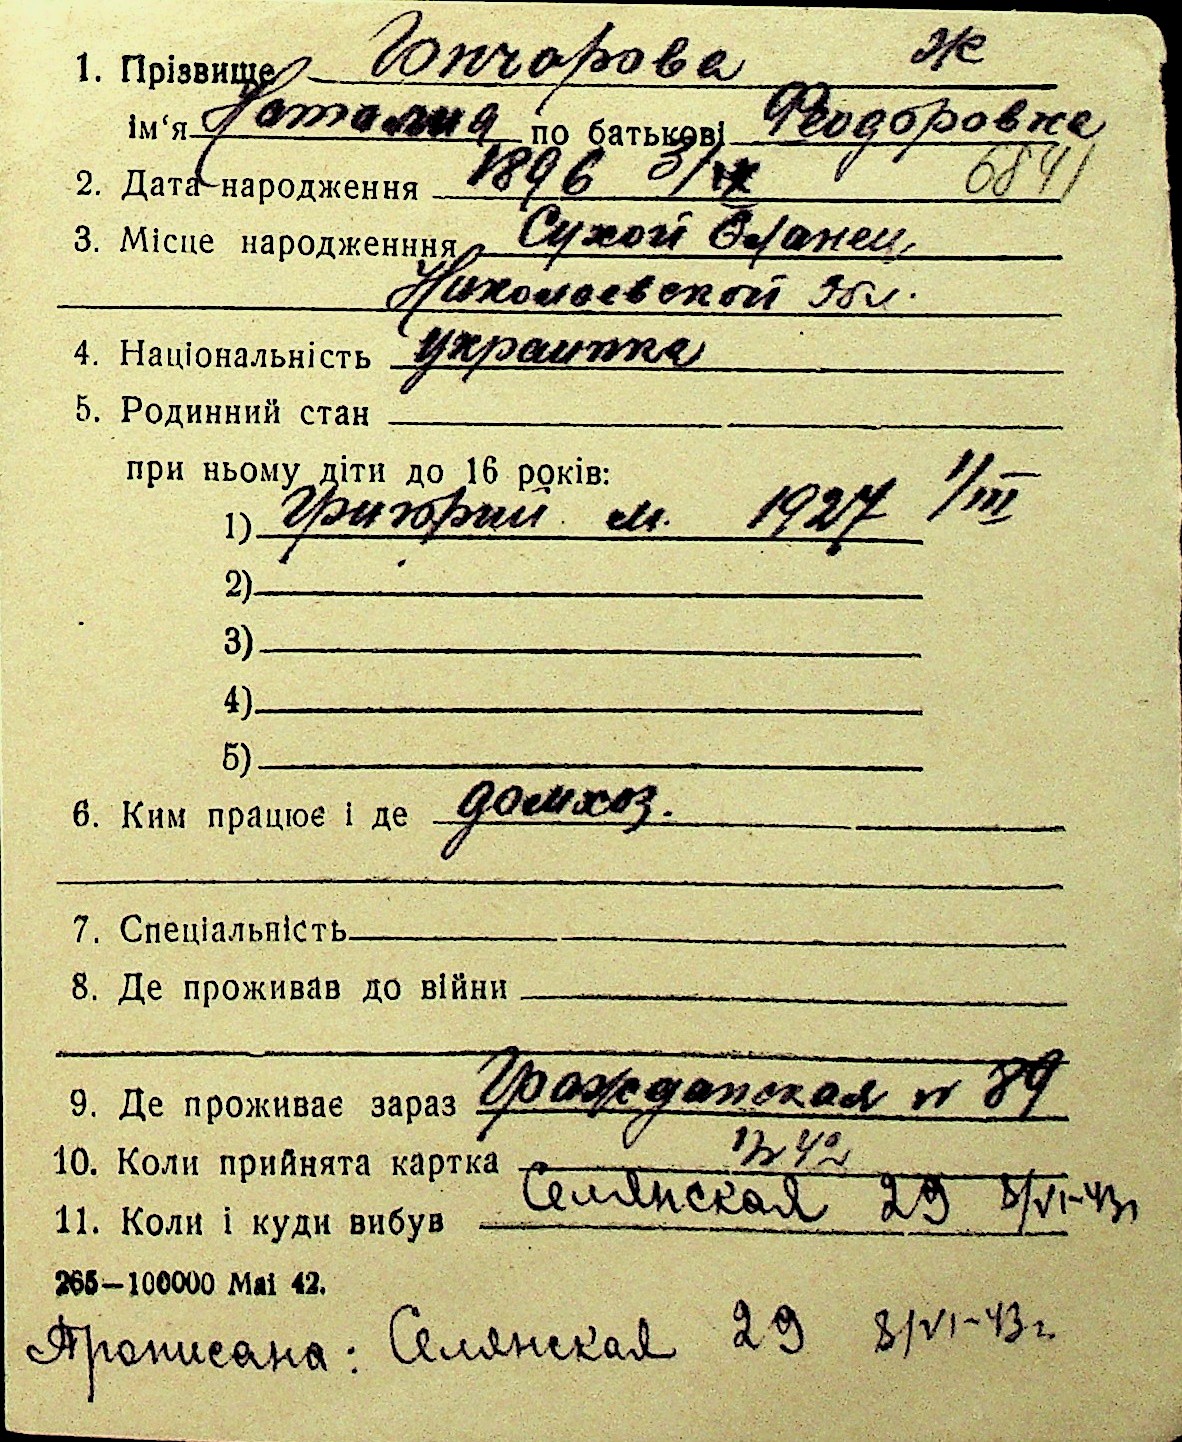 1. Прізвище Гончарова Ж
ім‘я Наталия по батькові Феодоровна
2. Дата народження 1896 3/IX 6841
3. Місце народженння Сухой Еланец,
Николаевской Обл.
4. Національність украинка
5. Родинний стан
при ньому діти до 16 років:
1) Григорий м. 1927 1/III
2)
3)
4)
5)
6. Ким працює і де домхоз.
7. Спеціальність
8. Де проживав до війни
9. Де проживає зараз Гражданская № 89
10. Коли прийнята картка 42
11. Коли і куди вибув Селянская 29 8/VI-43г
265—100000 Mai 42.
Прописана: Селянская 29 8/VI-43г.